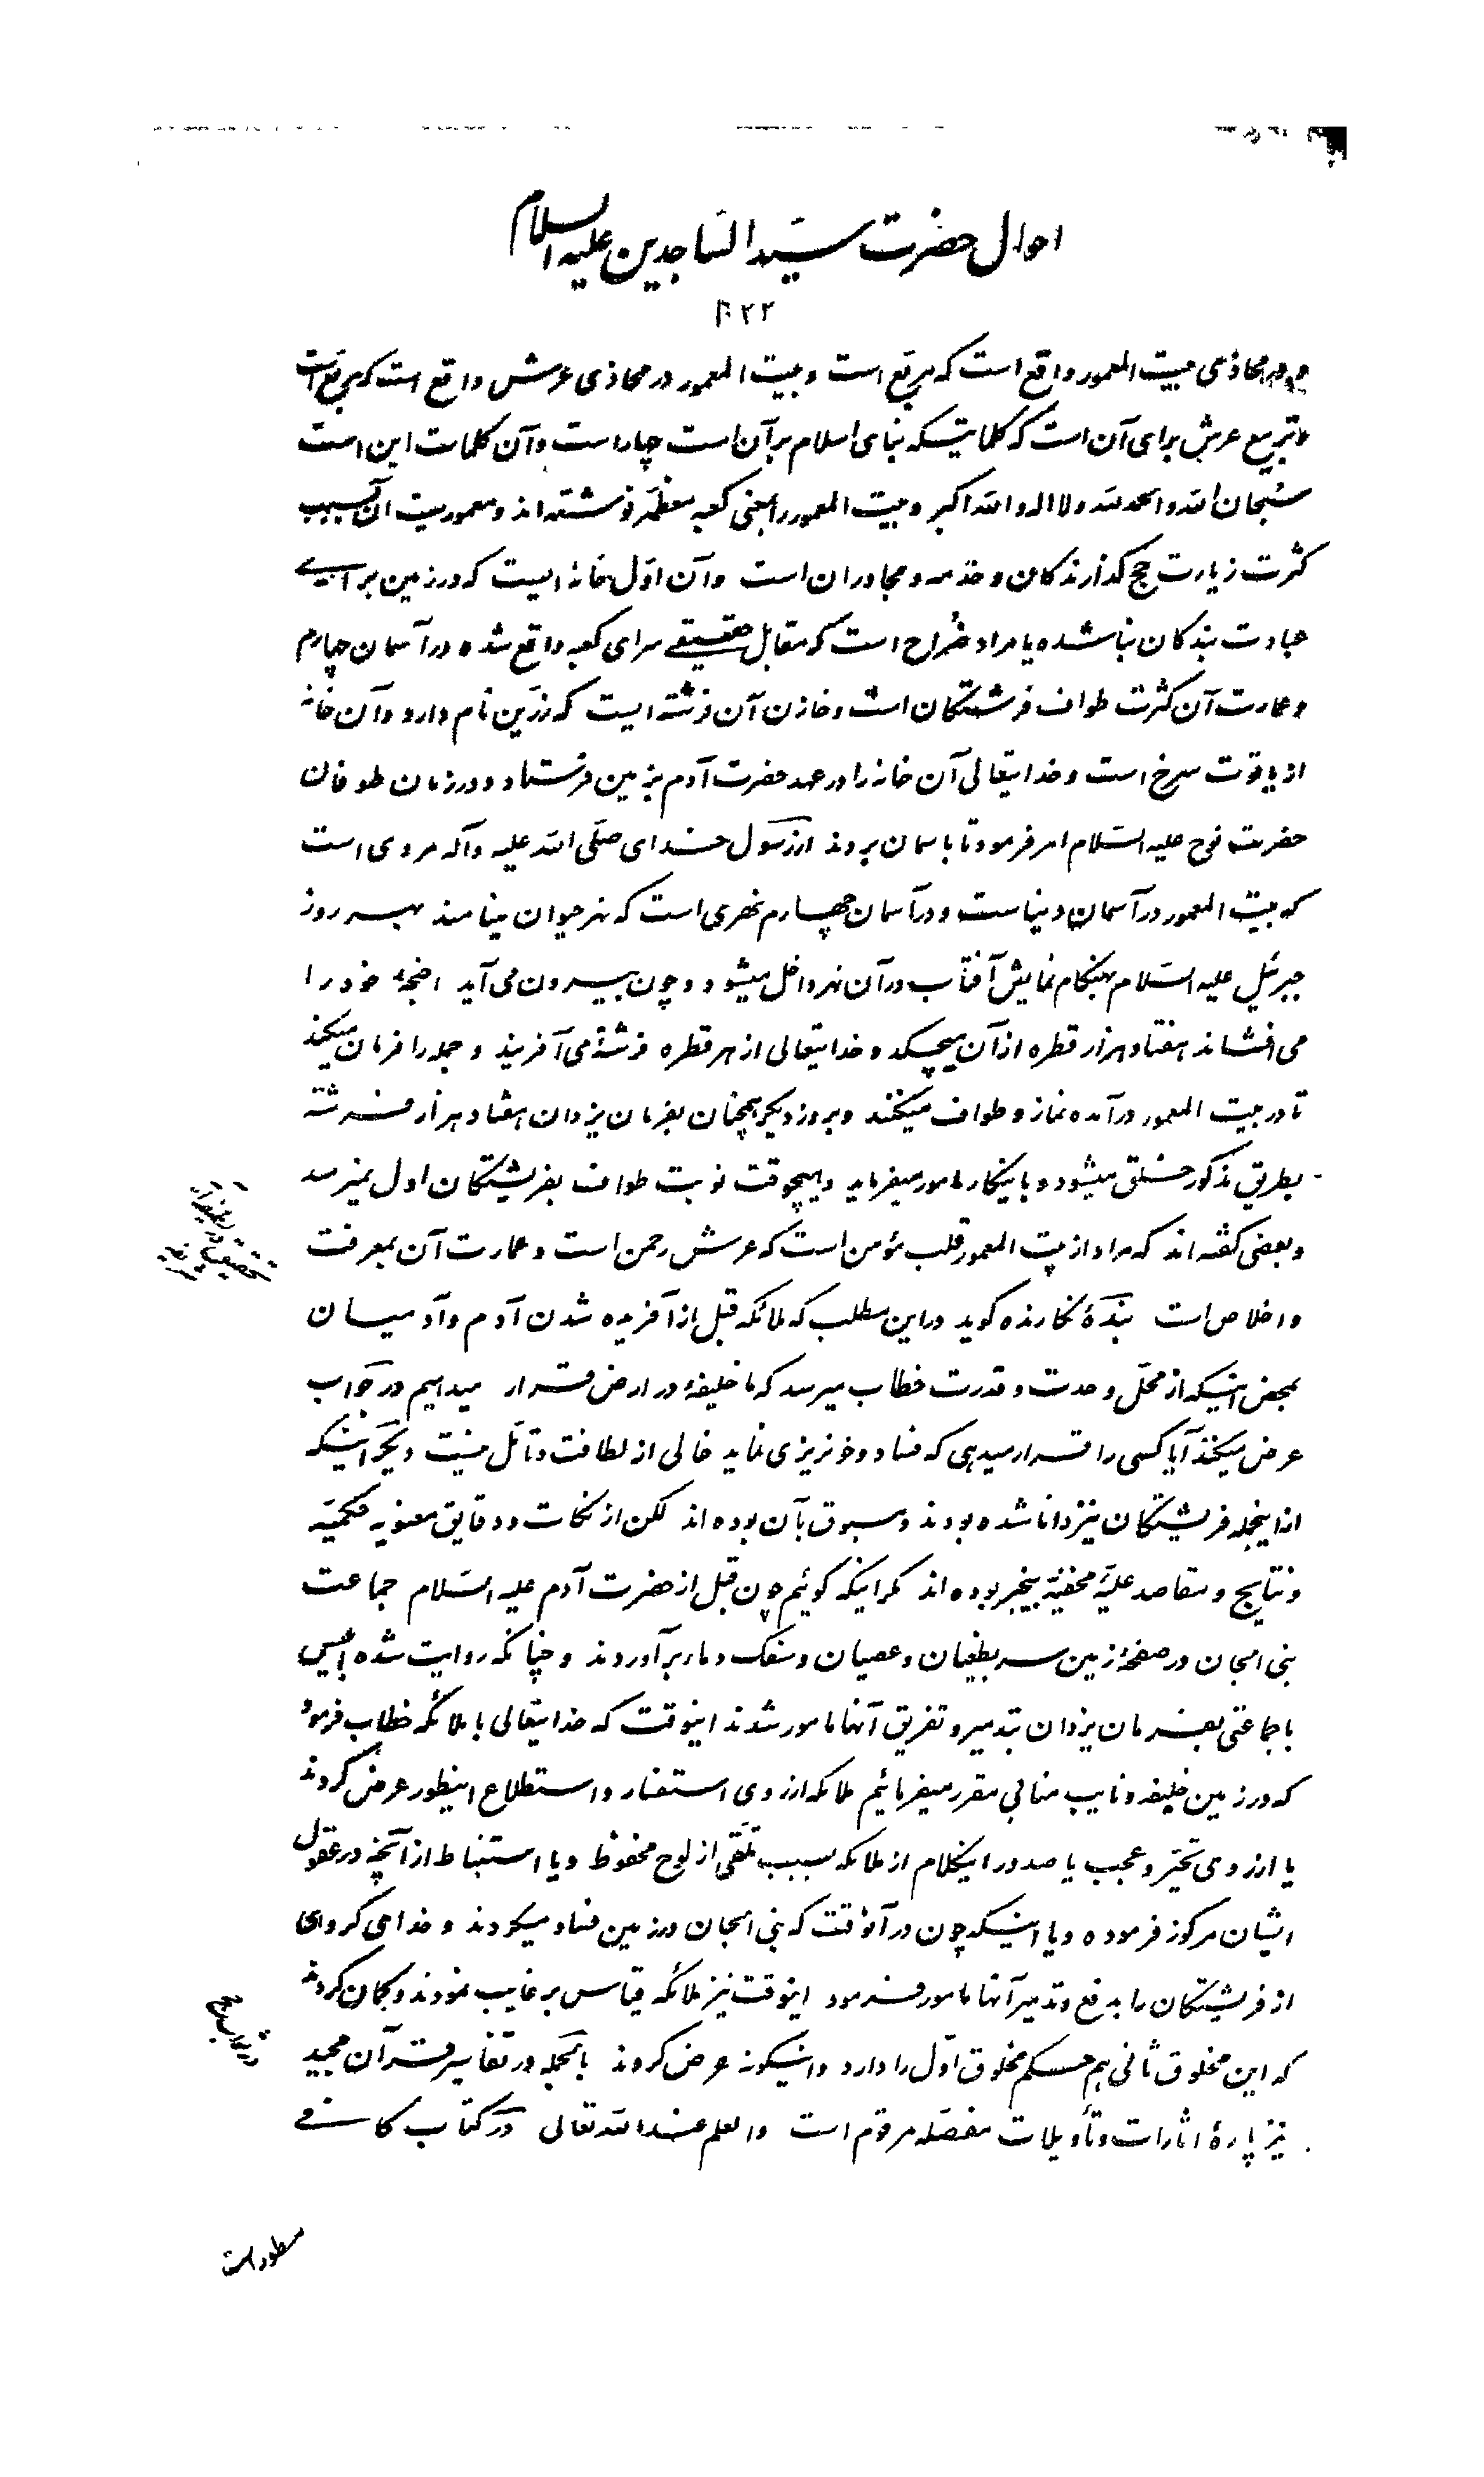 احوال حضرت سید الساجدین علیه السلام
و در محاذی بیت المعمور واقع است که مربع است و بیت المعمور در محاذی عرش واقع است که مربع است
و تربیع عرش برای آن است که کلماتیکه بنای اسلام بر آن است چهار است و آن کلمات این است
سبحان الله و الحمد لله و لا اله و الله اکبر و بیت المعمور را بعضی کعبه معظمه نوشته اند و معموریت آن بسبب
کثرت زیارت حج گذارندگان و خدمه و مجاوران است و آن اول خانه ایست که در زمین برای
عبادت بندگان بنا شده یا مراد ضراح است که مقابل حقیقی سرای کعبه واقع شده در آسمان چهارم
و عمارت آن کثرت طواف فرشتگان است و خازن آن فرشته ایست که رزین نام دارد و آن خانه
از یاقوت سرخ است و خدایتعالی آن خانه را در عهد حضرت آدم بزمین فرستاد و در زمان طوفان
حضرت نوح علیه السلام امر فرمود تا باسمان بردند از رسول خدای صلی الله علیه وآله مروی است
که بیت المعمور در آسمان دنیاست و در آسمان چهارم نهری است که نهر حیوان مینامند بهر روز
جبرئیل علیه السلام بهنگام نمایش آفتاب در آن نهر داخل میشود و چون بیرون می آید اجنحهٔ خود را
می افشاند هفتاد هزار قطره از آن میچکد و خدایتعالی از هر قطره فرشتهٔ می آفریند و جمله را فرمان میکند
تا در بیت المعمور در آمده نماز و طواف میکنند و بروز دیگر همچنان بفرمان یزدان هفتاد هزار فرشته
بطریق مذکور خلق میشود و باینکار مامور میفرماید و هیچوقت نوبت طواف بفریشتگان اول نمیرسد
و بعضی گفته اند که مراد از بیت المعمور قلب مؤمن است که عرش رحمن است و عمارت آن بمعرفت
و اخلاص است بندهٔ نگارنده گوید در این مطلب که ملائکه قبل از آفریده شدن آدم و آدمیان
بمحض اینکه از محل وحدت و قدرت خطاب میرسد که ما خلیفهٔ در ارض قرار میدهیم در جواب
عرض میکنند آیا کسی را قرار میدهی که فساد و خونریزی نماید خالی از لطافت و تأمل نیست دیگر اینکه
از اینجمله فریشتگان نیز دانا شده بودند و مسبوق بآن بوده اند لکن از نکات و دقایق معنویه حکمیه
و نتایج و مقاصد علیهٔ مخفیه بیخبر بوده اند مگر اینکه گوئیم چون قبل از حضرت آدم علیه السلام جماعت
بنی الجان در صفحهٔ زمین سر بطغیان و عصیان و سفک دماء بر آوردند و چنانکه روایت شده ابلیس
با جماعتی بفرمان یزدان بتدمیر و تفریق آنها مامور شدند اینوقت که خدایتعالی با ملائکه خطاب فرمود
که در زمین خلیفه و نایب منابی مقرر میفرمائیم ملائکه از روی استفسار و استطلاع اینطور عرض کردند
یا از روی تحیر و عجب یا صدور اینکلام از ملائکه بسبب تلقی از لوح محفوظ و یا استنباط از آنچه در عقول
ایشان مرکوز فرموده و یا اینکه چون در آنوقت که بنی الجان در زمین فساد میکردند و خدا می گروهی
از فریشتگان را بدفع و تدمیر آنها مامور فرمود اینوقت نیز ملائکه قیاس بر غایب نمودند و گمان کردند
که این مخلوق ثانی هم حکم مخلوق اول را دارد و اینگونه عرض کردند بالجمله در تفاسیر قرآن مجید
نیز پارهٔ اشارات و تأویلات مفصله مرقوم است والعلم عند الله تعالی در کتاب کافی
مسطور است